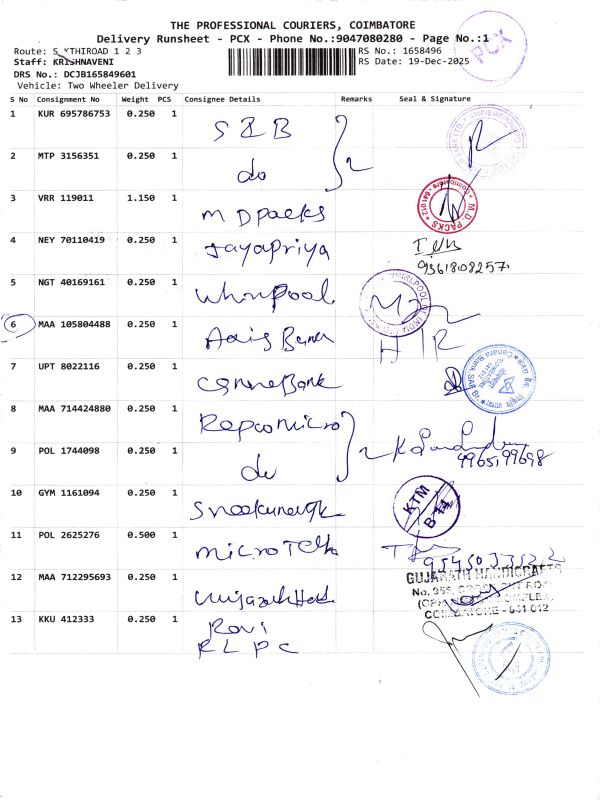 THE PROFESSIONAL COURIERS, COIMBATORE
Delivery Runsheet - PCX - Phone No.:9047080280 - Page No.:1
PCX
Route: S KTHIROAD 1 2 3
RS No.: 1658496
Staff: KRISHNAVENI
RS Date: 19-Dec-2025
DRS No.: DCJB165849601
Vehicle: Two Wheeler Delivery
S No Consignment No Weight PCS Consignee Details Remarks Seal & Signature
1 KUR 695786753 0.250 1
2 MTP 3156351 0.250 1 do
3 VRR 119011 1.150 1 M D Packs
M.D. PACKS
Coimbatore - 641 012
4 NEY 70110419 0.250 1 Jayapriya
9361808257
5 NGT 40169161 0.250 1 Whirlpool
WHIRLPOOL OF INDIA
6 MAA 105804488 0.250 1 Axis Bank
7 UPT 8022116 0.250 1 Canara Bank
Canara Bank
8 MAA 714424880 0.250 1 Repco Micro
9 POL 1744098 0.250 1 do
9965199698
10 GYM 1161094 0.250 1
KTM
11 POL 2625276 0.500 1 Micro Tech
12 MAA 712295693 0.250 1
GUJARATH HANDICRAFTS
COIMBATORE - 641 012
13 KKU 412333 0.250 1 Ravi
R L P C